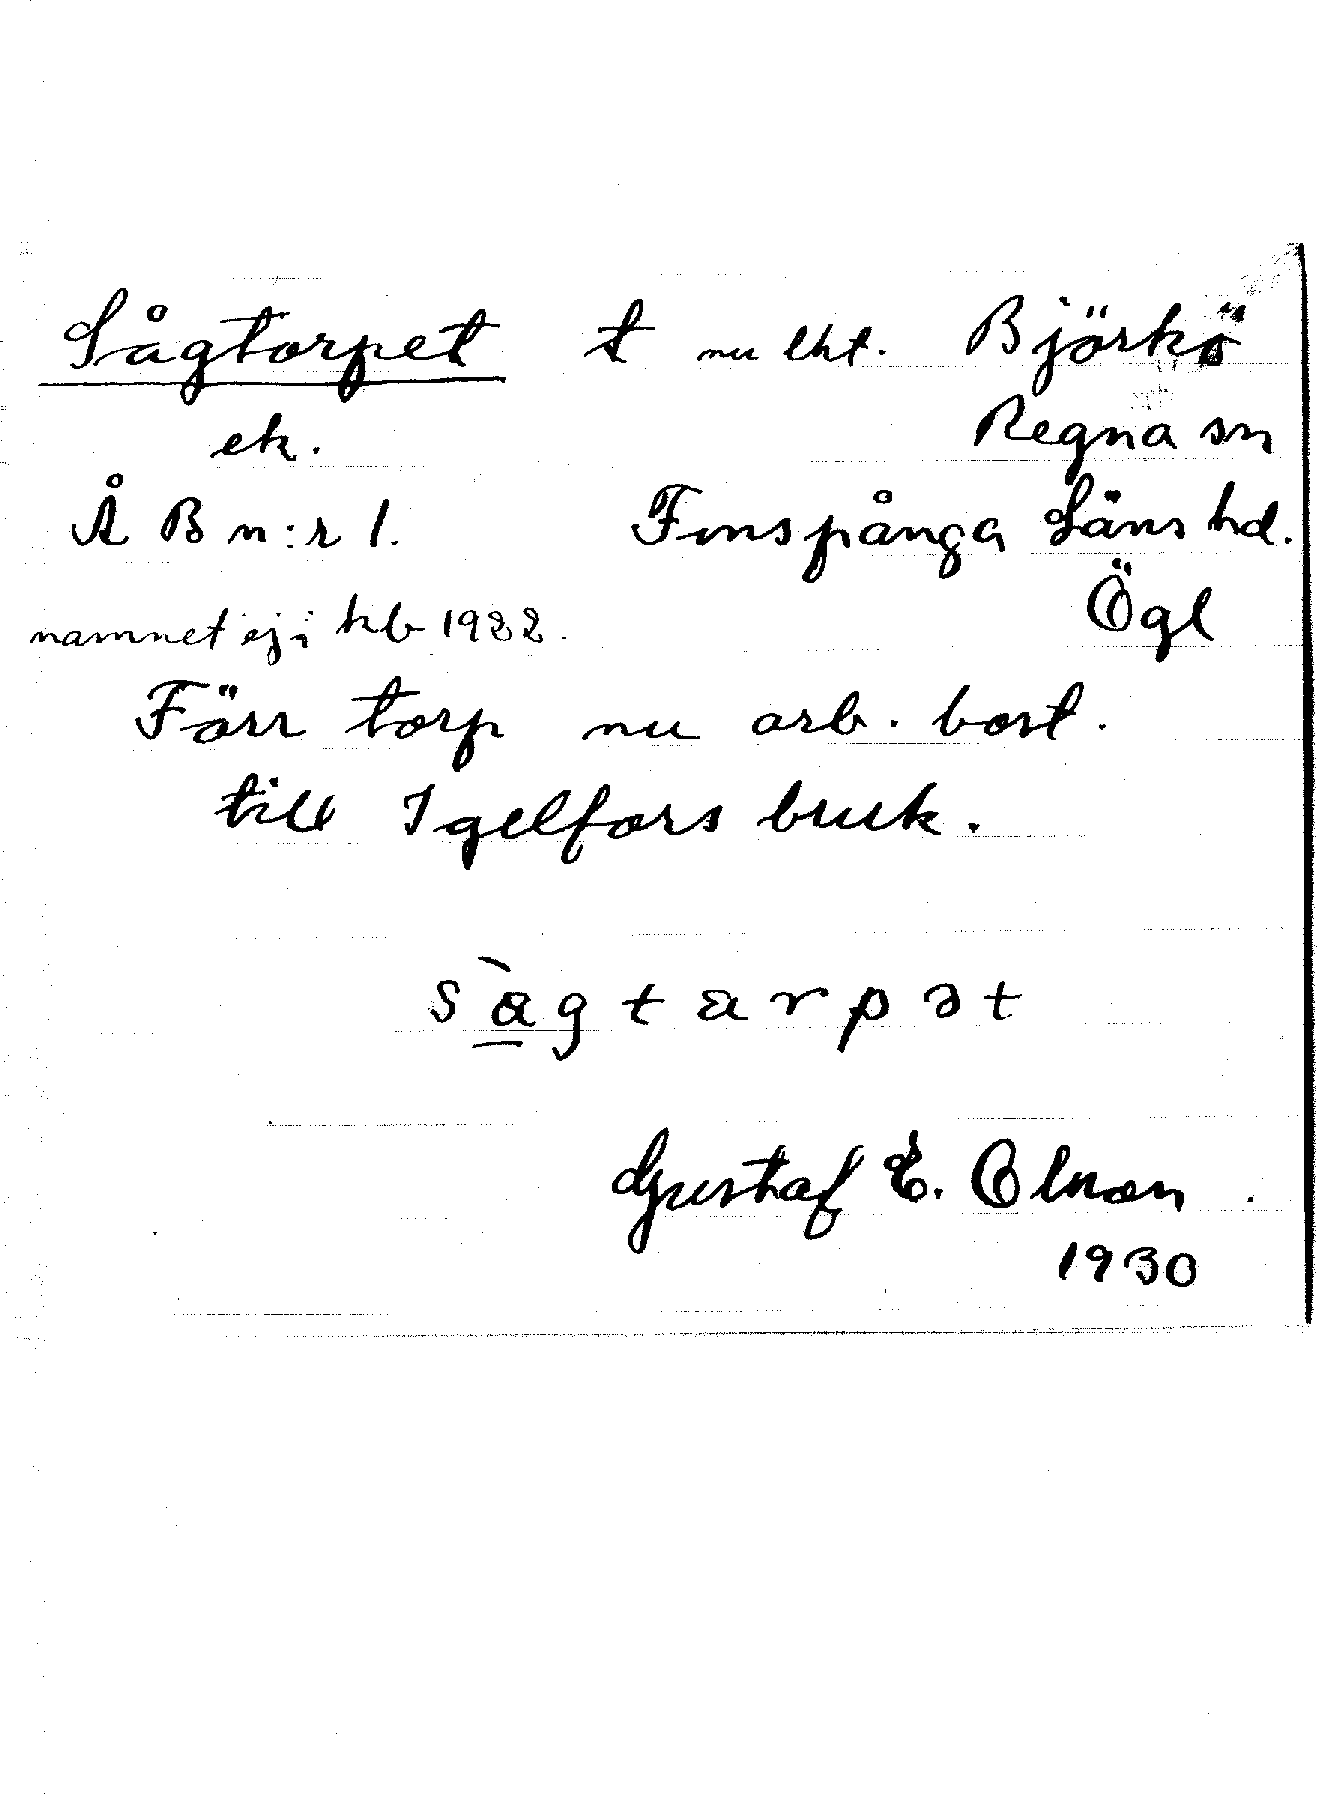 Sågtorpet t nu lht. Björkö
ek. Regna sn
Å B n:r 1. Finspånga Läns hd.
namnet ej i hb 1922. Ögl
Förr torp nu arb. bost.
till Igelfors bruk.
sàgtarpət
Gustaf E. Olsson
1930